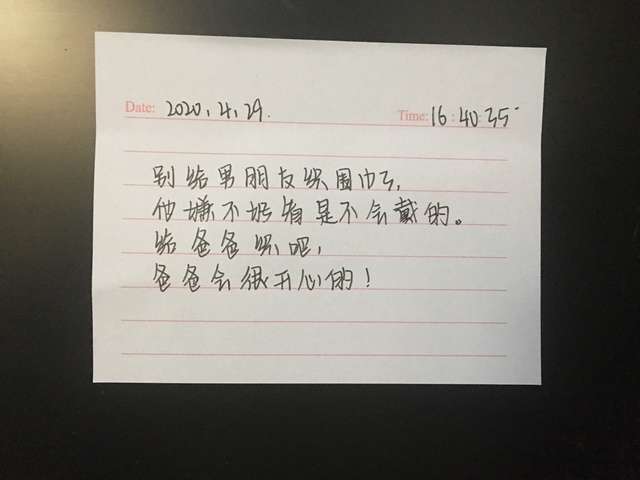 Date: 2020.4.29. Time: 16:40:35
别给男朋友织围巾了,
他嫌不好看是不会戴的。
给爸爸织吧,
爸爸会很开心的!